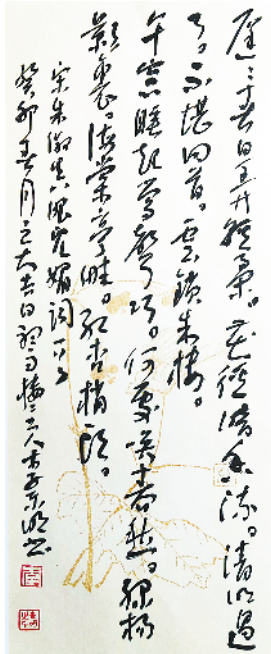 遲〻春日弄輕柔。花徑暗香流。清明過
了。不堪回首。雲鎖朱樓。
午窗睡起鶯聲巧。何處喚春愁。綠楊
影裏。海棠亭畔。紅杏梢頭。
宋朱淑真眼兒媚詞
癸卯春月之大吉日